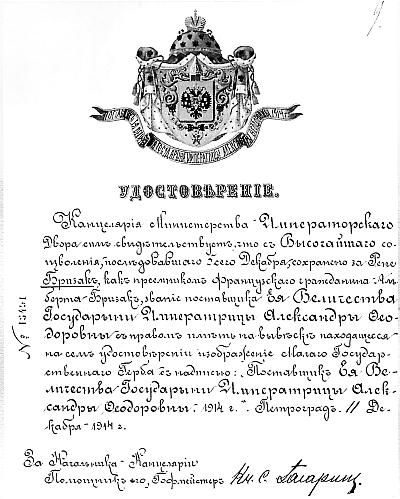 УДОСТОВѢРЕНІЕ.
Канцелярія Министерства Императорскаго
Двора симъ свидѣтельствуетъ, что съ Высочайшаго со-
изволенія, послѣдовавшаго 5сего Декабря, сохранено за Рене
Бризакъ, какъ преемникомъ французскаго гражданина Аль-
берта Бризакъ, званіе поставщика Ея Величества
Государыни Императрицы Александры Ѳео-
доровны съ правомъ имѣть на вывѣскѣ находящееся
на семъ удостовѣреніи изображеніе Малаго Государ-
ственнаго Герба съ надписью: „Поставщикъ Ея Ве-
личества Государыни Императрицы Алек-
сандры Ѳеодоровны. 1914 г." Петроградъ. 11 Де-
кабря 1914 г.
№ 13451
За Начальника Канцеляріи
Помощникъ его, Гофмейстеръ Кн. С. Гагаринъ